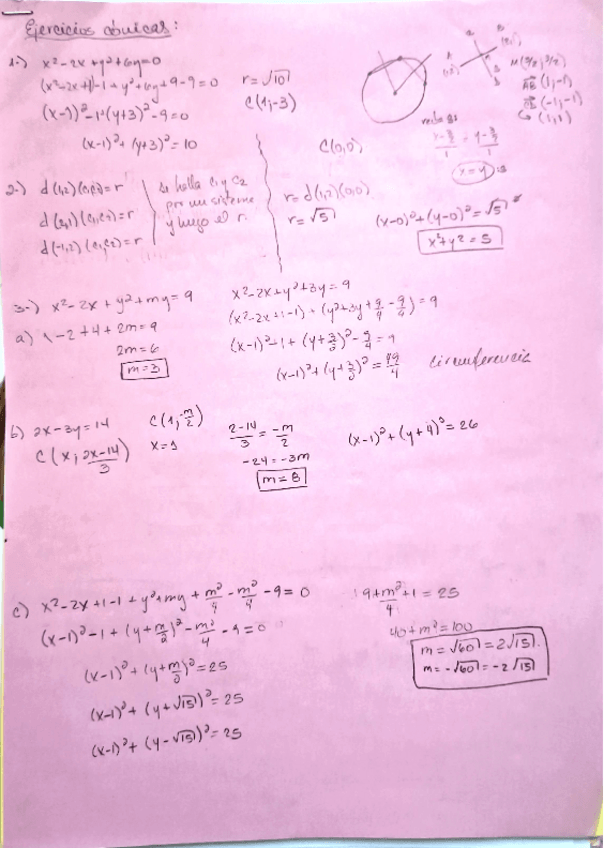 Ejercicios cónicas:
1-) x²-2x+y²+6y=0
(x²-2x+1)-1+y²+6y+9-9=0
(x-1)²-1+(y+3)²-9=0
(x-1)²+(y+3)²=10
r=√10
C(1,-3)
M(3/2, 3/2)
AB (1,-1)
(1,1)
x=y
2-) d(1,2)(c1,c2)=r
d(2,1)(c1,c2)=r
d(-1,2)(c1,c2)=r
se halla c1 y c2
por un sistema
y luego el r.
C(0,0)
r=d(1,2)(0,0)
r=√5
(x-0)²+(y-0)²=√5²
x²+y²=5
3-) x²-2x+y²+my=9
a) 1-2+4+2m=9
2m=6
m=3
x²-2x+y²+3y=9
(x²-2x+1-1)+(y²+3y+9/4-9/4)=9
(x-1)²-1+(y+3/2)²-9/4=9
(x-1)²+(y+3/2)²=49/4 circunferencia
b) 2x-3y=14
C(x; 2x-14/3)
C(1; -m/2)
x=1
2-14/3=-m/2
-24=-3m
m=8
(x-1)²+(y+4)²=26
c) x²-2x+1-1+y²+my+m²/4-m²/4-9=0
(x-1)²-1+(y+m/2)²-m²/4-9=0
(x-1)²+(y+m/2)²=25
(x-1)²+(y+√15)²=25
(x-1)²+(y-√15)²=25
9+m²/4+1=25
40+m²=100
m=√60=2√15.
m=-√60=-2√15